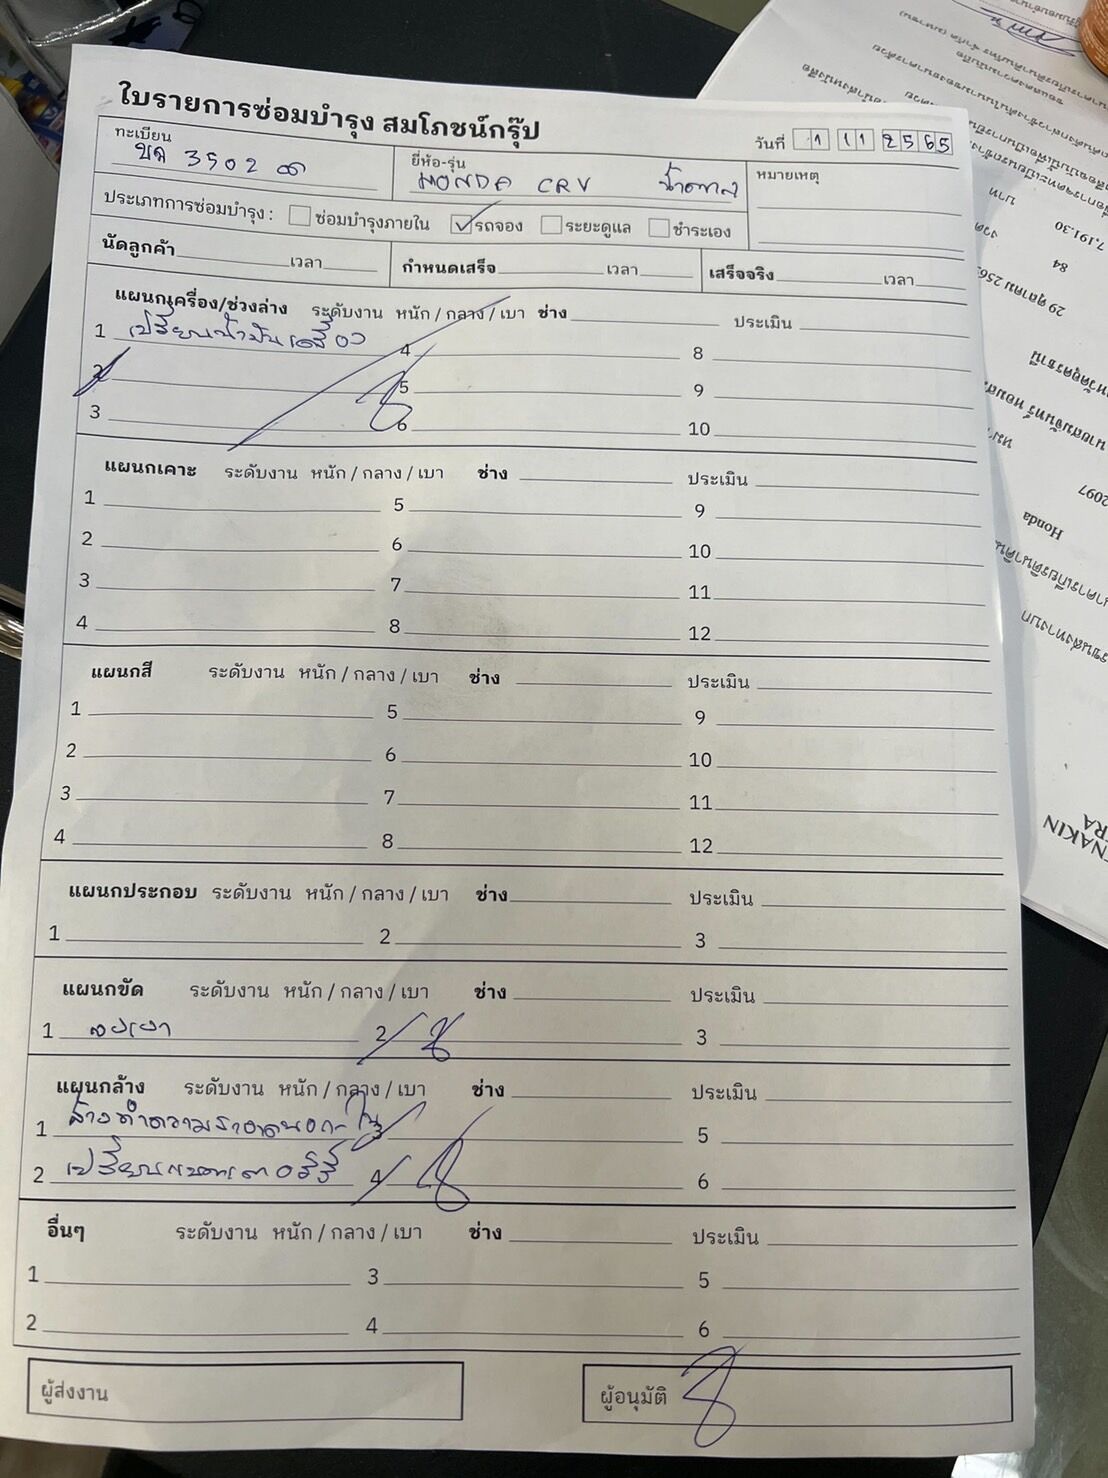 ใบรายการซ่อมบำรุง สมโภชน์กรุ๊ป
วันที่ 1 11 2565
ทะเบียน
3502
ยี่ห้อ-รุ่น
HONDA CRV น้ำตาล
หมายเหตุ
ประเภทการซ่อมบำรุง : ซ่อมบำรุงภายใน ✓ รถจอง ระยะดูแล ชำระเอง
นัดลูกค้า เวลา กำหนดเสร็จ เวลา เสร็จจริง เวลา
แผนกเครื่อง/ช่วงล่าง ระดับงาน หนัก / กลาง / เบา ช่าง ประเมิน
1 เปลี่ยนน้ำมันเครื่อง 4 8
2 5 9
3 6 10
แผนกเคาะ ระดับงาน หนัก / กลาง / เบา ช่าง ประเมิน
1 5 9
2 6 10
3 7 11
4 8 12
แผนกสี ระดับงาน หนัก / กลาง / เบา ช่าง ประเมิน
1 5 9
2 6 10
3 7 11
4 8 12
แผนกประกอบ ระดับงาน หนัก / กลาง / เบา ช่าง ประเมิน
1 2 3
แผนกขัด ระดับงาน หนัก / กลาง / เบา ช่าง ประเมิน
1 ลบเงา 2 3
แผนกล้าง ระดับงาน หนัก / กลาง / เบา ช่าง ประเมิน
1 ล้างทำความสะอาดนอก-ใน 3 5
2 เปลี่ยนแบตเตอรี่ 4 6
อื่นๆ ระดับงาน หนัก / กลาง / เบา ช่าง ประเมิน
1 3 5
2 4 6
ผู้ส่งงาน
ผู้อนุมัติ
7,191.30
บาท
84
งวด
29 ตุลาคม 256
2097
Honda